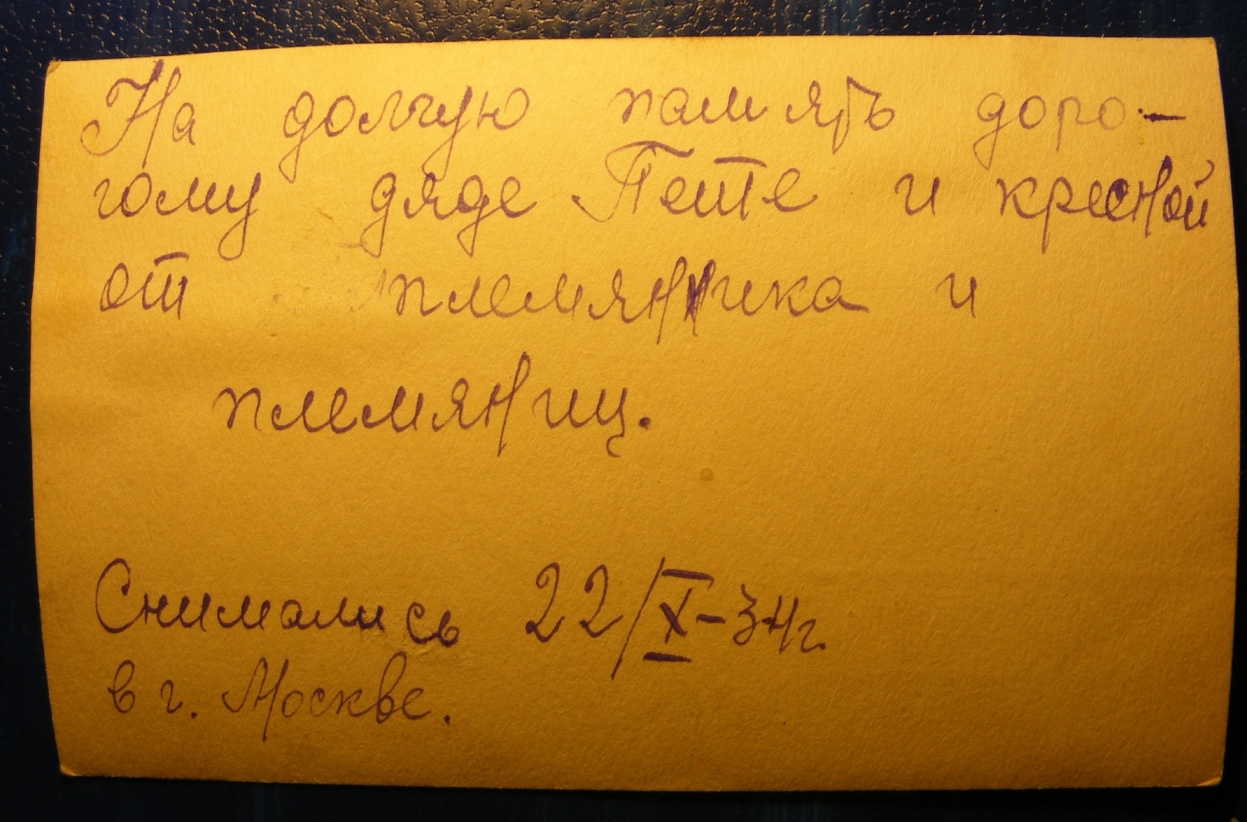 На долгую память доро-
гому дяде Пете и кресной
от племянника и
племяниц.
Снимались 22/X-34г.
в г. Москве.